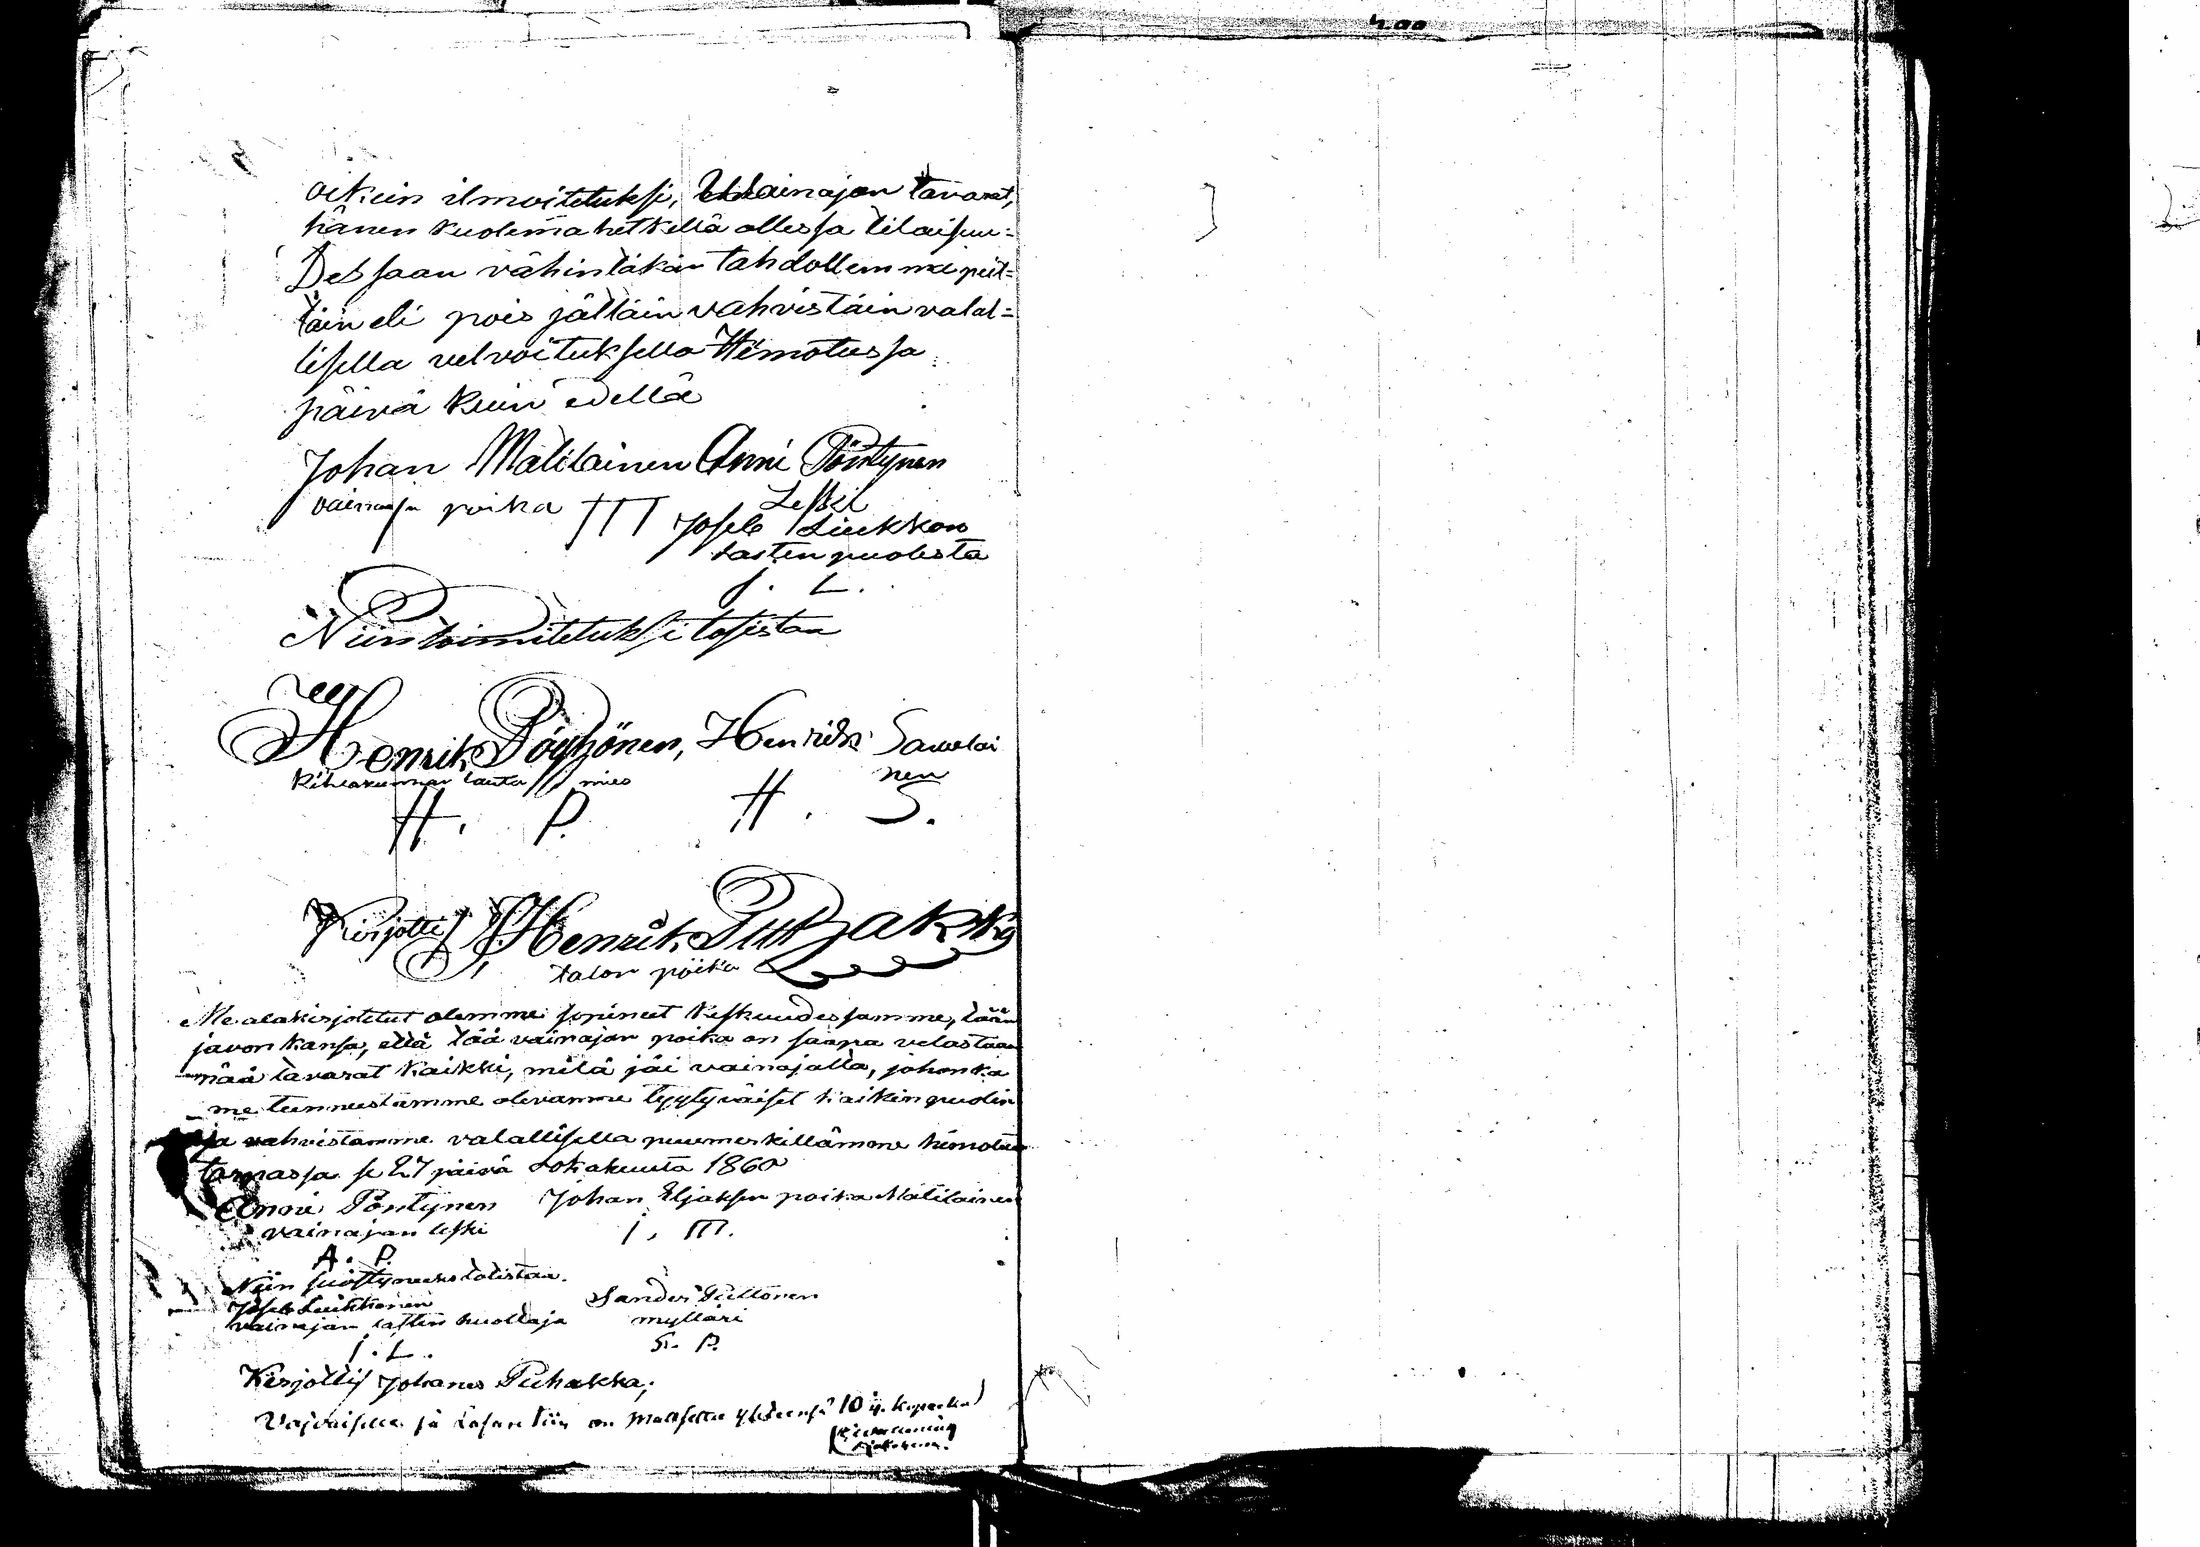 oikein ilmoitetuksi, Wainajan tavarat,
hänen kuolema hetkellä ollessa tilaisuu=
Dessaan vähintäkän tahdollemme peit=
täin eli pois jättäin vahvistain valal=
lisella velvoituksella Himotussa
päivä kuin edellä
Johan Matilainen Anni Pöntynen
vainaja poika Leski
Joseb Liukkon
Lasten puolesta
J. L.
Niin toimitetuksi tosistaa
Henrik Pöyhönen, Henrik Sawolai
nen
Kihlakunnan lauta mies
H. P. H. S.
Kirjotti Henrik Puhakka
talon poika
Me alakirjotetut olemme sopineet keskuudessamme, tään
javon kansa, että tää vainajan poika on saapa velastaan
nää tavarat kaikki, mitä jäi vainajalta, johonka
me tunnustamme olevamme tyytyväiset kaikin puolin
ja vahvistamme valallisella puumerkillämme himotus
tarpassa se 27 päivä Lokakuuta 1860
Anni Pöntynen Johan Eljaksen poika Matilainen
vainajan leski J. M.
A. P.
Niin suostuneeks totistaa.
Joseb Liukkonen Sander Piittonen
vainajan lasten huoltaja mylläri
J. L. S. P.
Kirjotti Johanes Puhakka;
Vajvaisille ja Lasarettiin on maksettu yhteensä 10 kopeekka